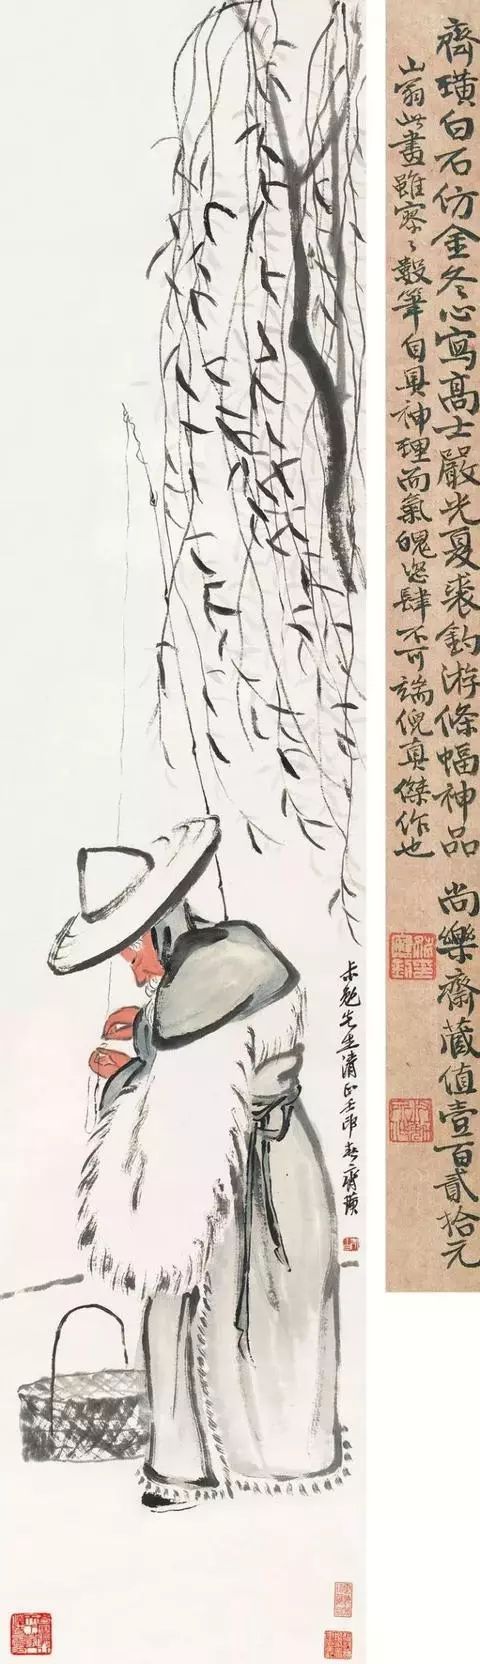 齊璜白石仿金冬心寫高士嚴光夏裘釣游條幅神品 尚樂齋藏值壹百貳拾元
山翁此畫雖寥〻數筆自具神理而氣魄恣肆不可端倪真傑作也
先生清正壬申春齊璜